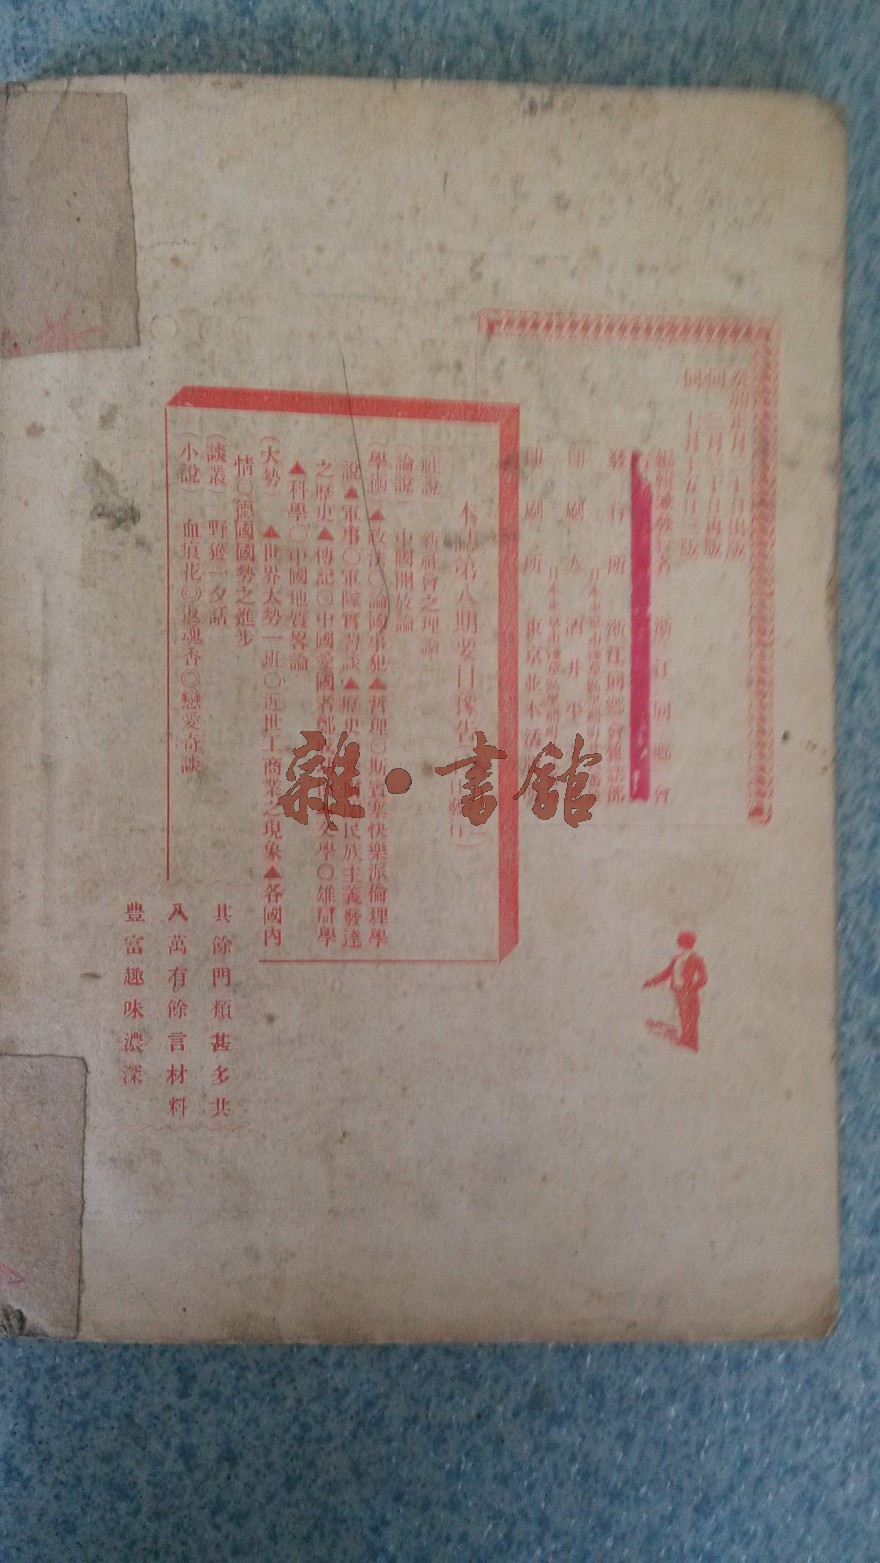 癸卯正月二十日出版
同 三月二十日再版
同 十月十五日三版
編輯兼發行者 浙江同鄉會
發行所 浙江同鄉會雜誌部
印刷人 酒井平
印刷所 東京並木活版
本誌第八期要目豫告
(社說) 新社會之理論
(論說) 中國開放論
(學術)▲政法○論國事犯▲哲理○斯賓塞快樂派倫理學
說▲軍事○軍隊實習談▲歷史 民族主義發達
之歷史▲傳記○中國愛國者鄭 文學○雄辯學
▲科學○中國地質畧論
(大勢) ▲世界大勢一班○近世工商業之現象▲各國內
情○德國國勢之進步
(談叢) 野獲一夕話
(小說) 血痕花◎返魂香◎戀愛奇談
其餘門類甚多共
八萬有餘言材料
豐富趣味濃深
雜·書館